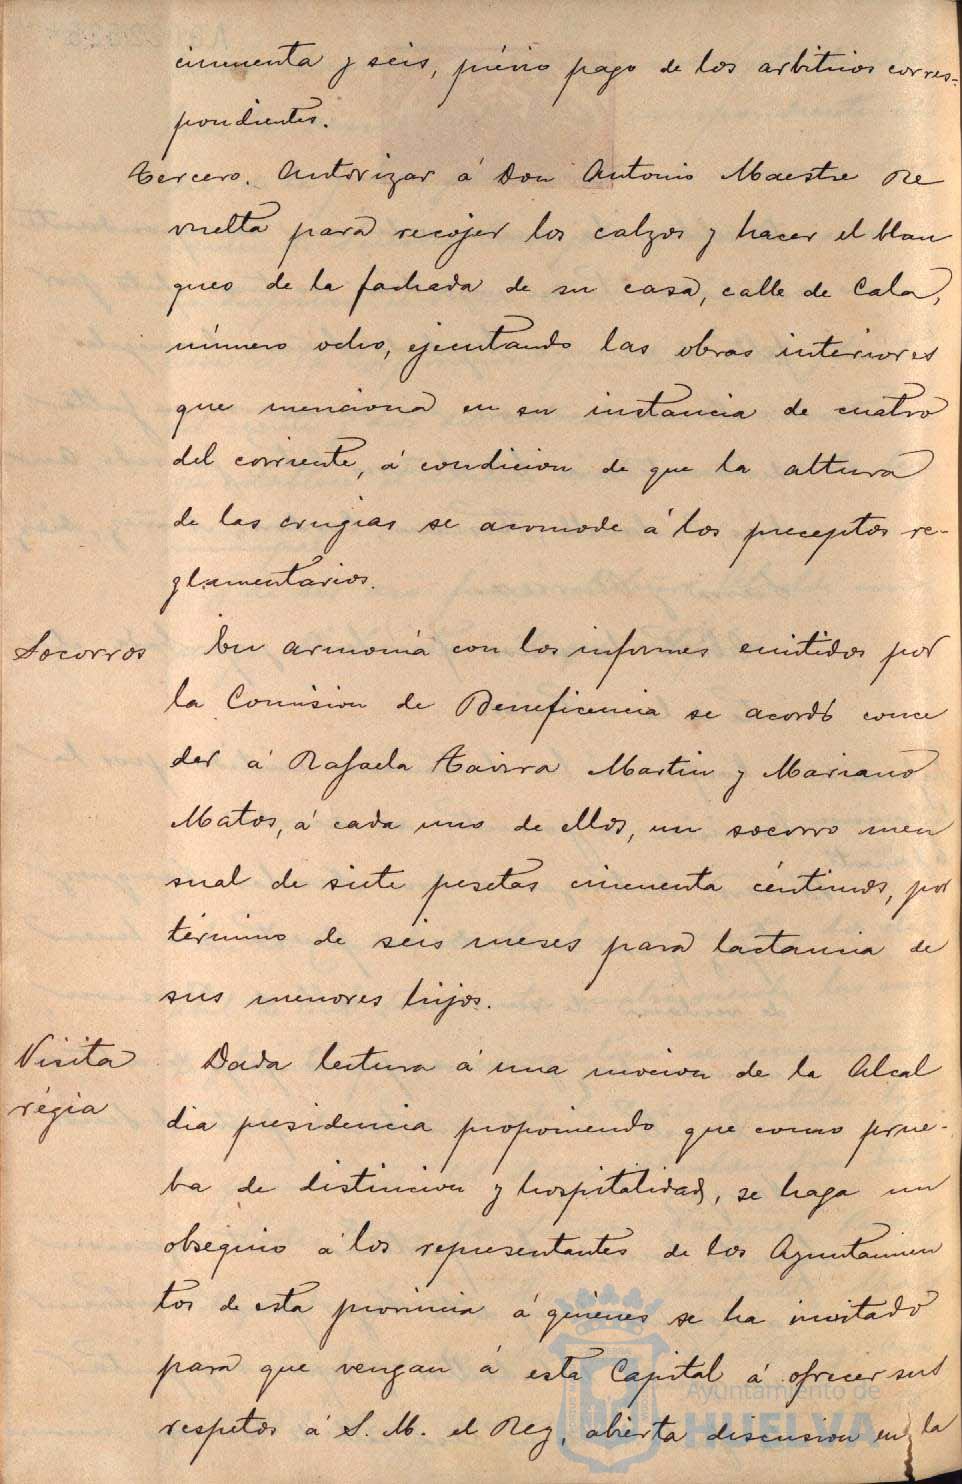 cincuenta y seis, prévio pago de los arbitrios corres-
pondientes.
Tercero. Autorizar á Don Antonio Maestre Re
vuelta para recojer los calzos y hacer el blan
queo de la fachada de su casa, calle de Cala,
número ocho, ejecutando las obras interiores
que menciona en su instancia de cuatro
del corriente, á condicion de que la altura
de las crugias se acomode á los preceptos re-
glamentarios.
Socorros
En armonía con los informes emitidos por
la Comision de Beneficencia se acordó conce
der á Rafaela Tavira Martin y Mariano
Matos, á cada uno de ellos, un socorro men
sual de siete pesetas cincuenta céntimos, por
término de seis meses para lactancia de
sus menores hijos.
Visita
régia
Dada lectura á una mocion de la Alcal
dia presidencia proponiendo que como prue-
ba de distincion y hospitalidad, se haga un
obsequio á los representantes de los Ayuntamien
tos de esta provincia á quienes se ha invitado
para que vengan á esta Capital á ofrecer sus
respetos á S. M. el Rey, abierta discusion en la
Ayuntamiento de
HUELVA